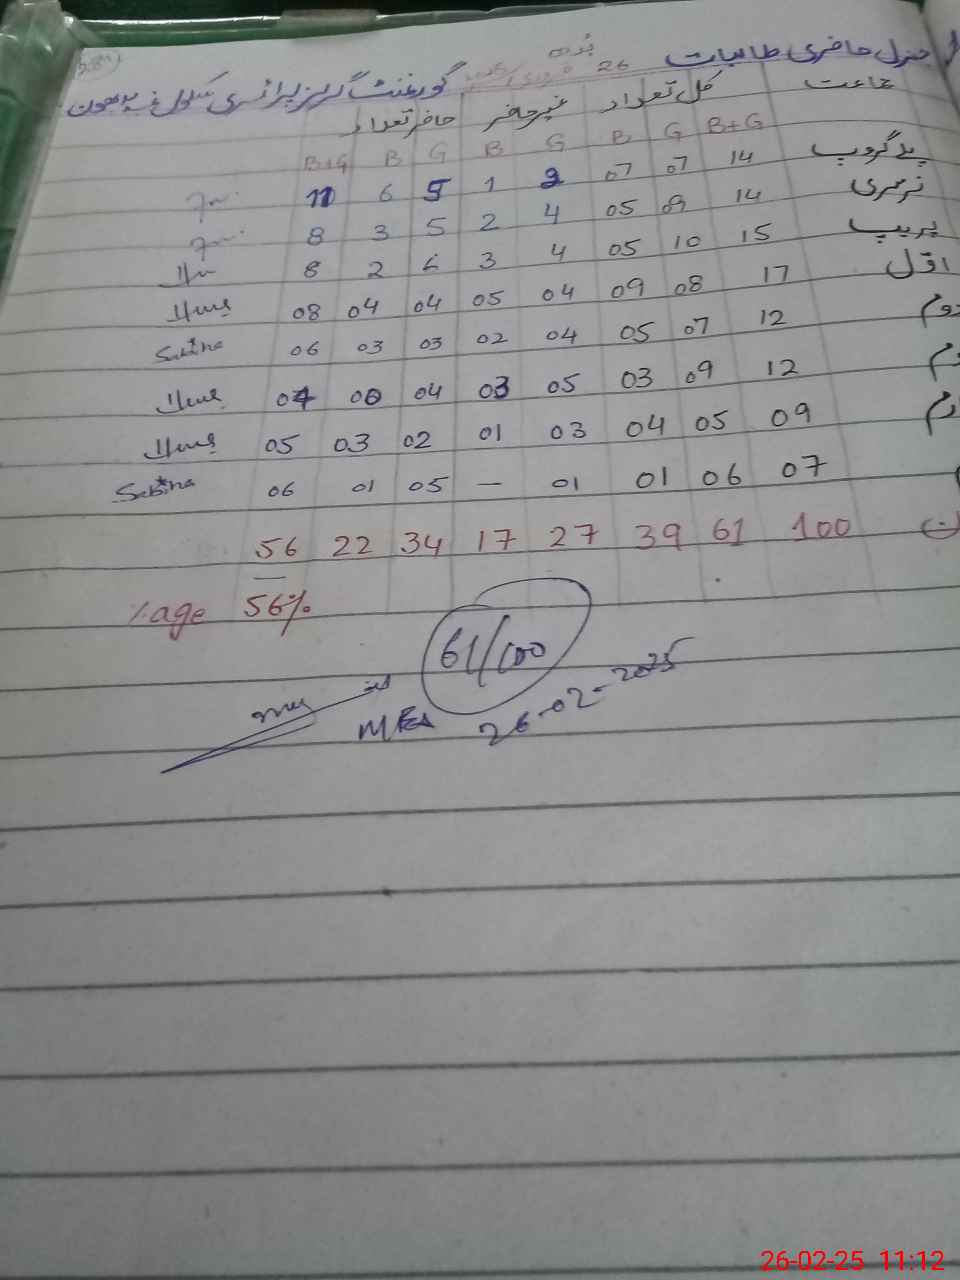 جنرل حاضری طالبات 26 فروری بروز بدھ گورنمنٹ گرلز پرائمری سکول
جماعت کل تعداد غیر حاضر حاضر تعداد
B+G G B G B G B B+G
پلے گروپ 14 07 07 2 1 5 6 11
نرسری 14 09 05 4 2 5 3 8
پریپ 15 10 05 4 3 6 2 8
اوّل 17 08 09 04 05 04 04 08
دوم 12 07 05 04 02 03 03 06 Sabina
12 09 03 05 03 04 00 04
09 05 04 03 01 02 03 05
07 06 01 01 — 05 01 06 Sabina
100 61 39 27 17 34 22 56
%age 56%
61/100
MEA 26-02-2025
26-02-25 11:12